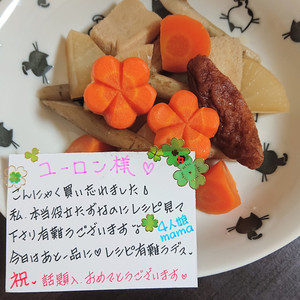 ユーロン様♡
こんにゃく買い忘れました♪
私、本当役立たずなのにレシピ見て
下さり有難うございます
4人娘
mama
今日はあと一品に♡レシピ有難うデス。
祝 話題入、おめでとうございます♡